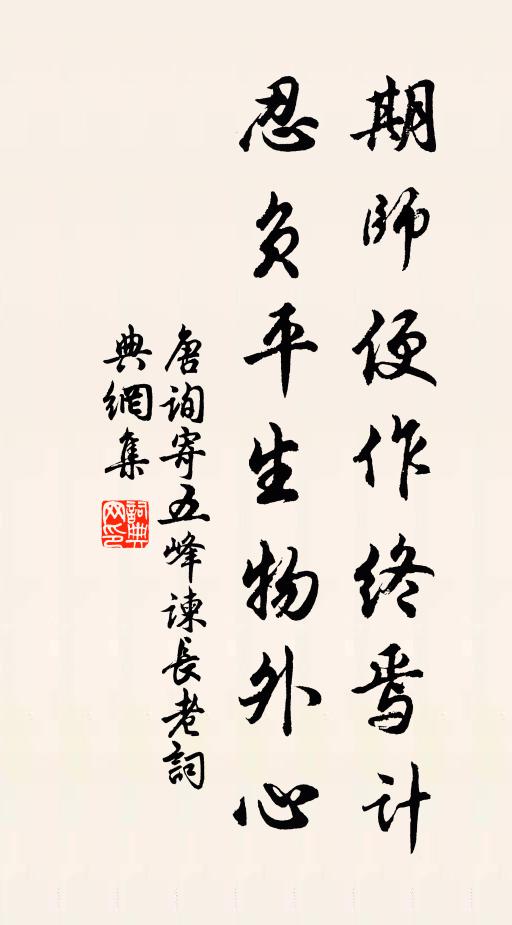 期師便作終焉計
忍負平生物外心
唐詢寄五峰諫長老詞
典網集
詞典網印